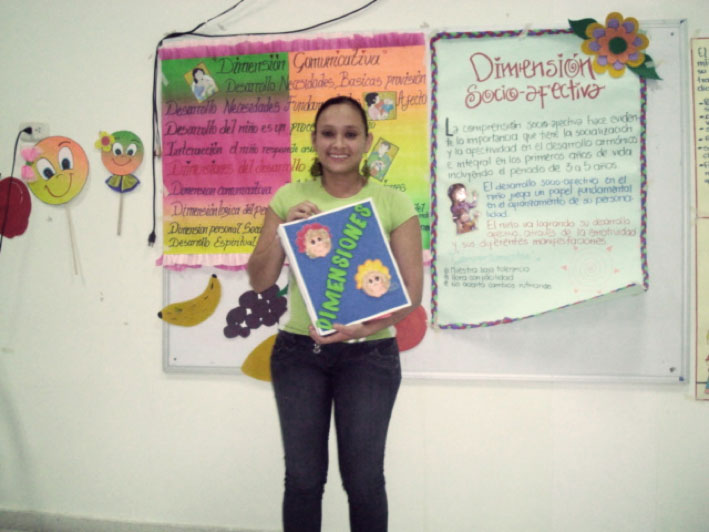 Dimensión Comunicativa"
Desarrollo Necesidades, Basicas provisión
Desarrollo Necesidades Fundamental Afecto
Desarrollo del niño es un proce
Interacción el niño responde
Dimensiones del desarrollo
Dimension comunicativa
Dimension logica del pe
Dimension personal Social
Desarrollo Espiritual
DIMENSIONES
Dimensión
Socio-afectiva
La comprensión socio afectiva hace eviden
te la importancia que tiene la socialización
y la afectividad en el desarrollo armónico
e integral en los primeros años de vida
incluyendo el periodo de 3 a 5 años.
El desarrollo socio-afectivo en el
niño juega un papel fundamental
en el afianzamiento de su persona
lidad.
El niño va logrando su desarrollo
afectivo através de la emotividad
y sus diferentes manifestaciones
Muestra baja tolerancia
llora con facilidad
No acepta